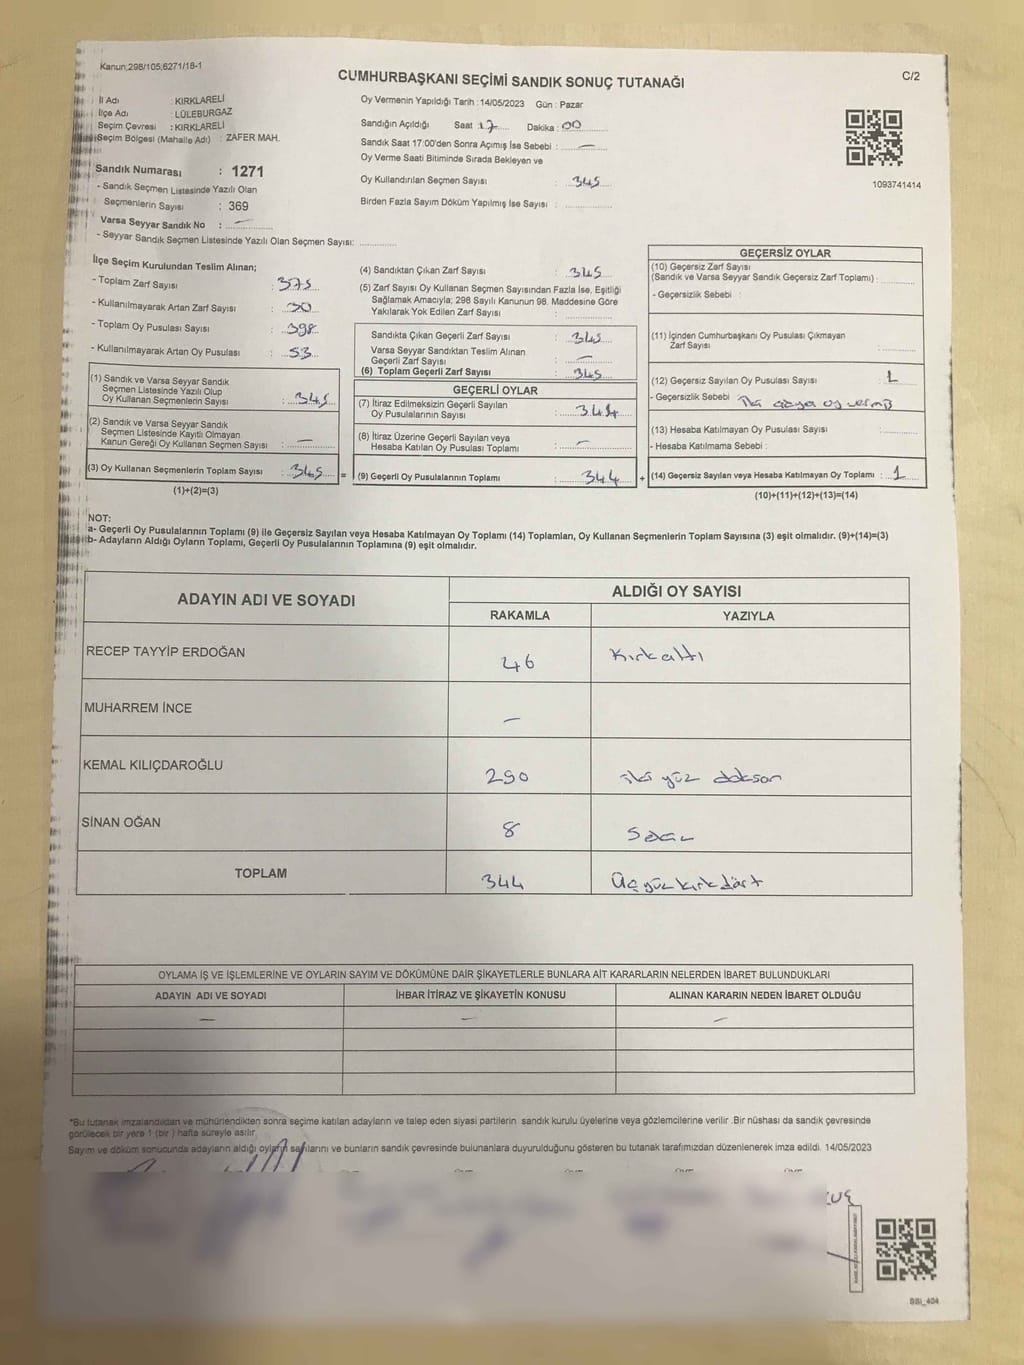 Kanun;298/105;6271/18-1
CUMHURBAŞKANI SEÇİMİ SANDIK SONUÇ TUTANAĞI
C/2
İl Adı : KIRKLARELİ
İlçe Adı : LÜLEBURGAZ
Seçim Çevresi : KIRKLARELİ
Seçim Bölgesi (Mahalle Adı) : ZAFER MAH.
Sandık Numarası : 1271
- Sandık Seçmen Listesinde Yazılı Olan
Seçmenlerin Sayısı : 369
Varsa Seyyar Sandık No : —
- Seyyar Sandık Seçmen Listesinde Yazılı Olan Seçmen Sayısı: ............
Oy Vermenin Yapıldığı Tarih : 14/05/2023 Gün : Pazar
Sandığın Açıldığı Saat : 17 Dakika : 00
Sandık Saat 17:00'den Sonra Açımış İse Sebebi : —
Oy Verme Saati Bitiminde Sırada Bekleyen ve
Oy Kullandırılan Seçmen Sayısı : 345
Birden Fazla Sayım Döküm Yapılmış İse Sayısı : ............
1093741414
İlçe Seçim Kurulundan Teslim Alınan;
- Toplam Zarf Sayısı : 375
- Kullanılmayarak Artan Zarf Sayısı : 30
- Toplam Oy Pusulası Sayısı : 398
- Kullanılmayarak Artan Oy Pusulası : 53
(1) Sandık ve Varsa Seyyar Sandık
Seçmen Listesinde Yazılı Olup
Oy Kullanan Seçmenlerin Sayısı : 345
(2) Sandık ve Varsa Seyyar Sandık
Seçmen Listesinde Kayıtlı Olmayan
Kanun Gereği Oy Kullanan Seçmen Sayısı : —
(3) Oy Kullanan Seçmenlerin Toplam Sayısı : 345 =
(1)+(2)=(3)
(4) Sandıktan Çıkan Zarf Sayısı : 345
(5) Zarf Sayısı Oy Kullanan Seçmen Sayısından Fazla İse, Eşitliği
Sağlamak Amacıyla; 298 Sayılı Kanunun 98. Maddesine Göre
Yakılarak Yok Edilen Zarf Sayısı : ............
Sandıkta Çıkan Geçerli Zarf Sayısı : 345
Varsa Seyyar Sandıktan Teslim Alınan
Geçerli Zarf Sayısı : —
(6) Toplam Geçerli Zarf Sayısı : 345
GEÇERLİ OYLAR
(7) İtiraz Edilmeksizin Geçerli Sayılan
Oy Pusulalarının Sayısı : 344
(8) İtiraz Üzerine Geçerli Sayılan veya
Hesaba Katılan Oy Pusulası Toplamı : —
(9) Geçerli Oy Pusulalarının Toplamı : 344 +
GEÇERSİZ OYLAR
(10) Geçersiz Zarf Sayısı
(Sandık ve Varsa Seyyar Sandık Geçersiz Zarf Toplamı) : ............
- Geçersizlik Sebebi :
(11) İçinden Cumhurbaşkanı Oy Pusulası Çıkmayan
Zarf Sayısı : ............
(12) Geçersiz Sayılan Oy Pusulası Sayısı : 1
- Geçersizlik Sebebi : iki adaya oy vermiş
(13) Hesaba Katılmayan Oy Pusulası Sayısı : ............
- Hesaba Katılmama Sebebi :
(14) Geçersiz Sayılan veya Hesaba Katılmayan Oy Toplamı : 1
(10)+(11)+(12)+(13)=(14)
NOT:
a- Geçerli Oy Pusulalarının Toplamı (9) ile Geçersiz Sayılan veya Hesaba Katılmayan Oy Toplamı (14) Toplamları, Oy Kullanan Seçmenlerin Toplam Sayısına (3) eşit olmalıdır. (9)+(14)=(3)
b- Adayların Aldığı Oyların Toplamı, Geçerli Oy Pusulalarının Toplamına (9) eşit olmalıdır.
ADAYIN ADI VE SOYADI
ALDIĞI OY SAYISI
RAKAMLA YAZIYLA
RECEP TAYYİP ERDOĞAN 46 Kırkaltı
MUHARREM İNCE —
KEMAL KILIÇDAROĞLU 290 iki yüz doksan
SİNAN OĞAN 8 Sekiz
TOPLAM 344 Üç yüz kırk dört
OYLAMA İŞ VE İŞLEMLERİNE VE OYLARIN SAYIM VE DÖKÜMÜNE DAİR ŞİKAYETLERLE BUNLARA AİT KARARLARIN NELERDEN İBARET BULUNDUKLARI
ADAYIN ADI VE SOYADI İHBAR İTİRAZ VE ŞİKAYETİN KONUSU ALINAN KARARIN NEDEN İBARET OLDUĞU
— — —
"Bu tutanak imzalandıktan ve mühürlendikten sonra seçime katılan adayların ve talep eden siyasi partilerin sandık kurulu üyelerine veya gözlemcilerine verilir .Bir nüshası da sandık çevresinde
görülecek bir yere 1 (bir ) hafta süreyle asılır.
Sayım ve döküm sonucunda adayların aldığı oyların sayılarını ve bunların sandık çevresinde bulunanlara duyurulduğunu gösteren bu tutanak tarafımızdan düzenlenerek imza edildi. 14/05/2023